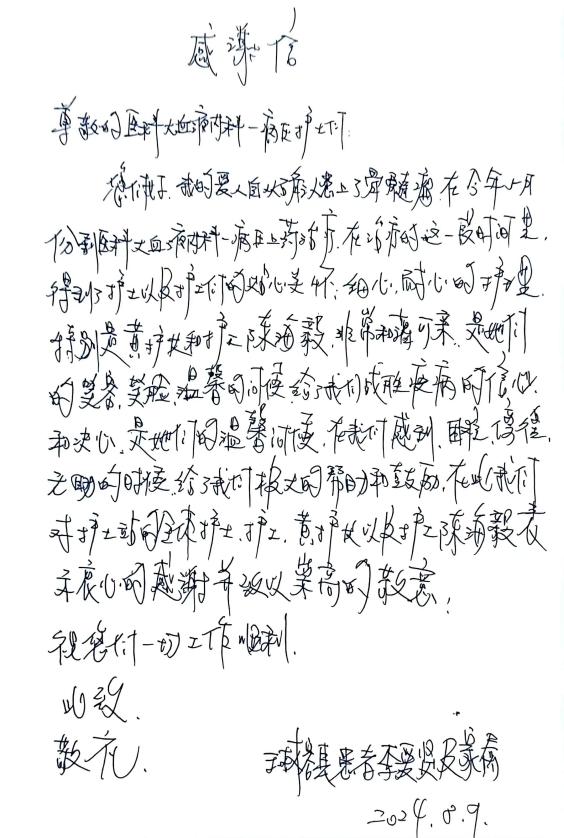 感谢信
尊敬的医科大血液内科一病区护士们:
您们好,我的爱人自从患上了骨髓瘤,在今年5月
份到医科大血液内科一病区上药治疗,在治疗的这一段时间里,
得到了护士以及护工们的热心关怀,细心,耐心的护理.
特别是黄护士和护工陈海毅,非常和蔼可亲,是她们
的笑容,笑脸,温馨的问候给了我们战胜疾病的信心
和决心,是她们的温馨问候,在我们感到困难,傍徨,
无助的时候,给了我们极大的帮助和鼓励,在此我们
对护士站的全体护士,护工,黄护士以及护工陈海毅表
示衷心的感谢并致以崇高的敬意!
祝您们一切工作顺利.
此致.
敬礼.
患者李爱贤及家属
2024.8.9.